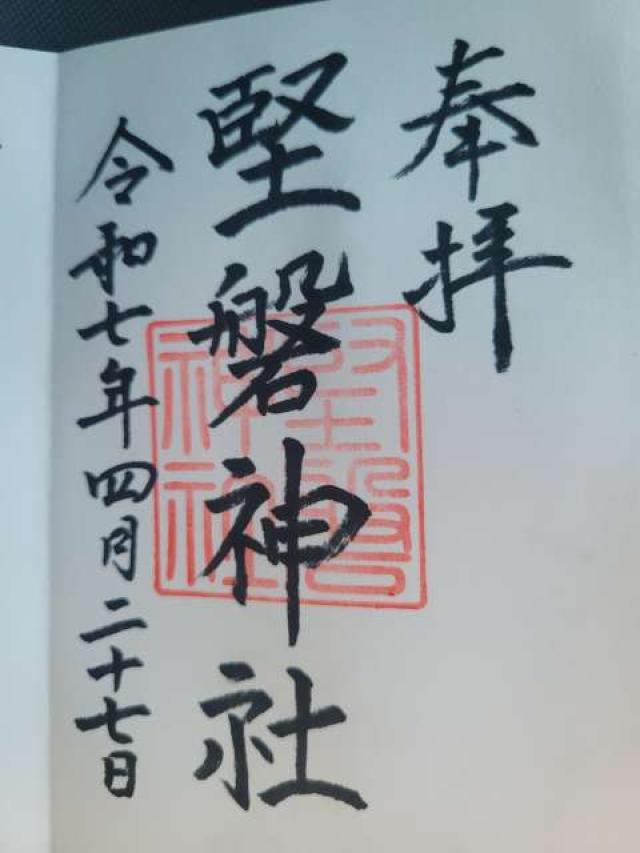 奉拝
堅磐神社
令和七年四月二十七日
堅磐
神社